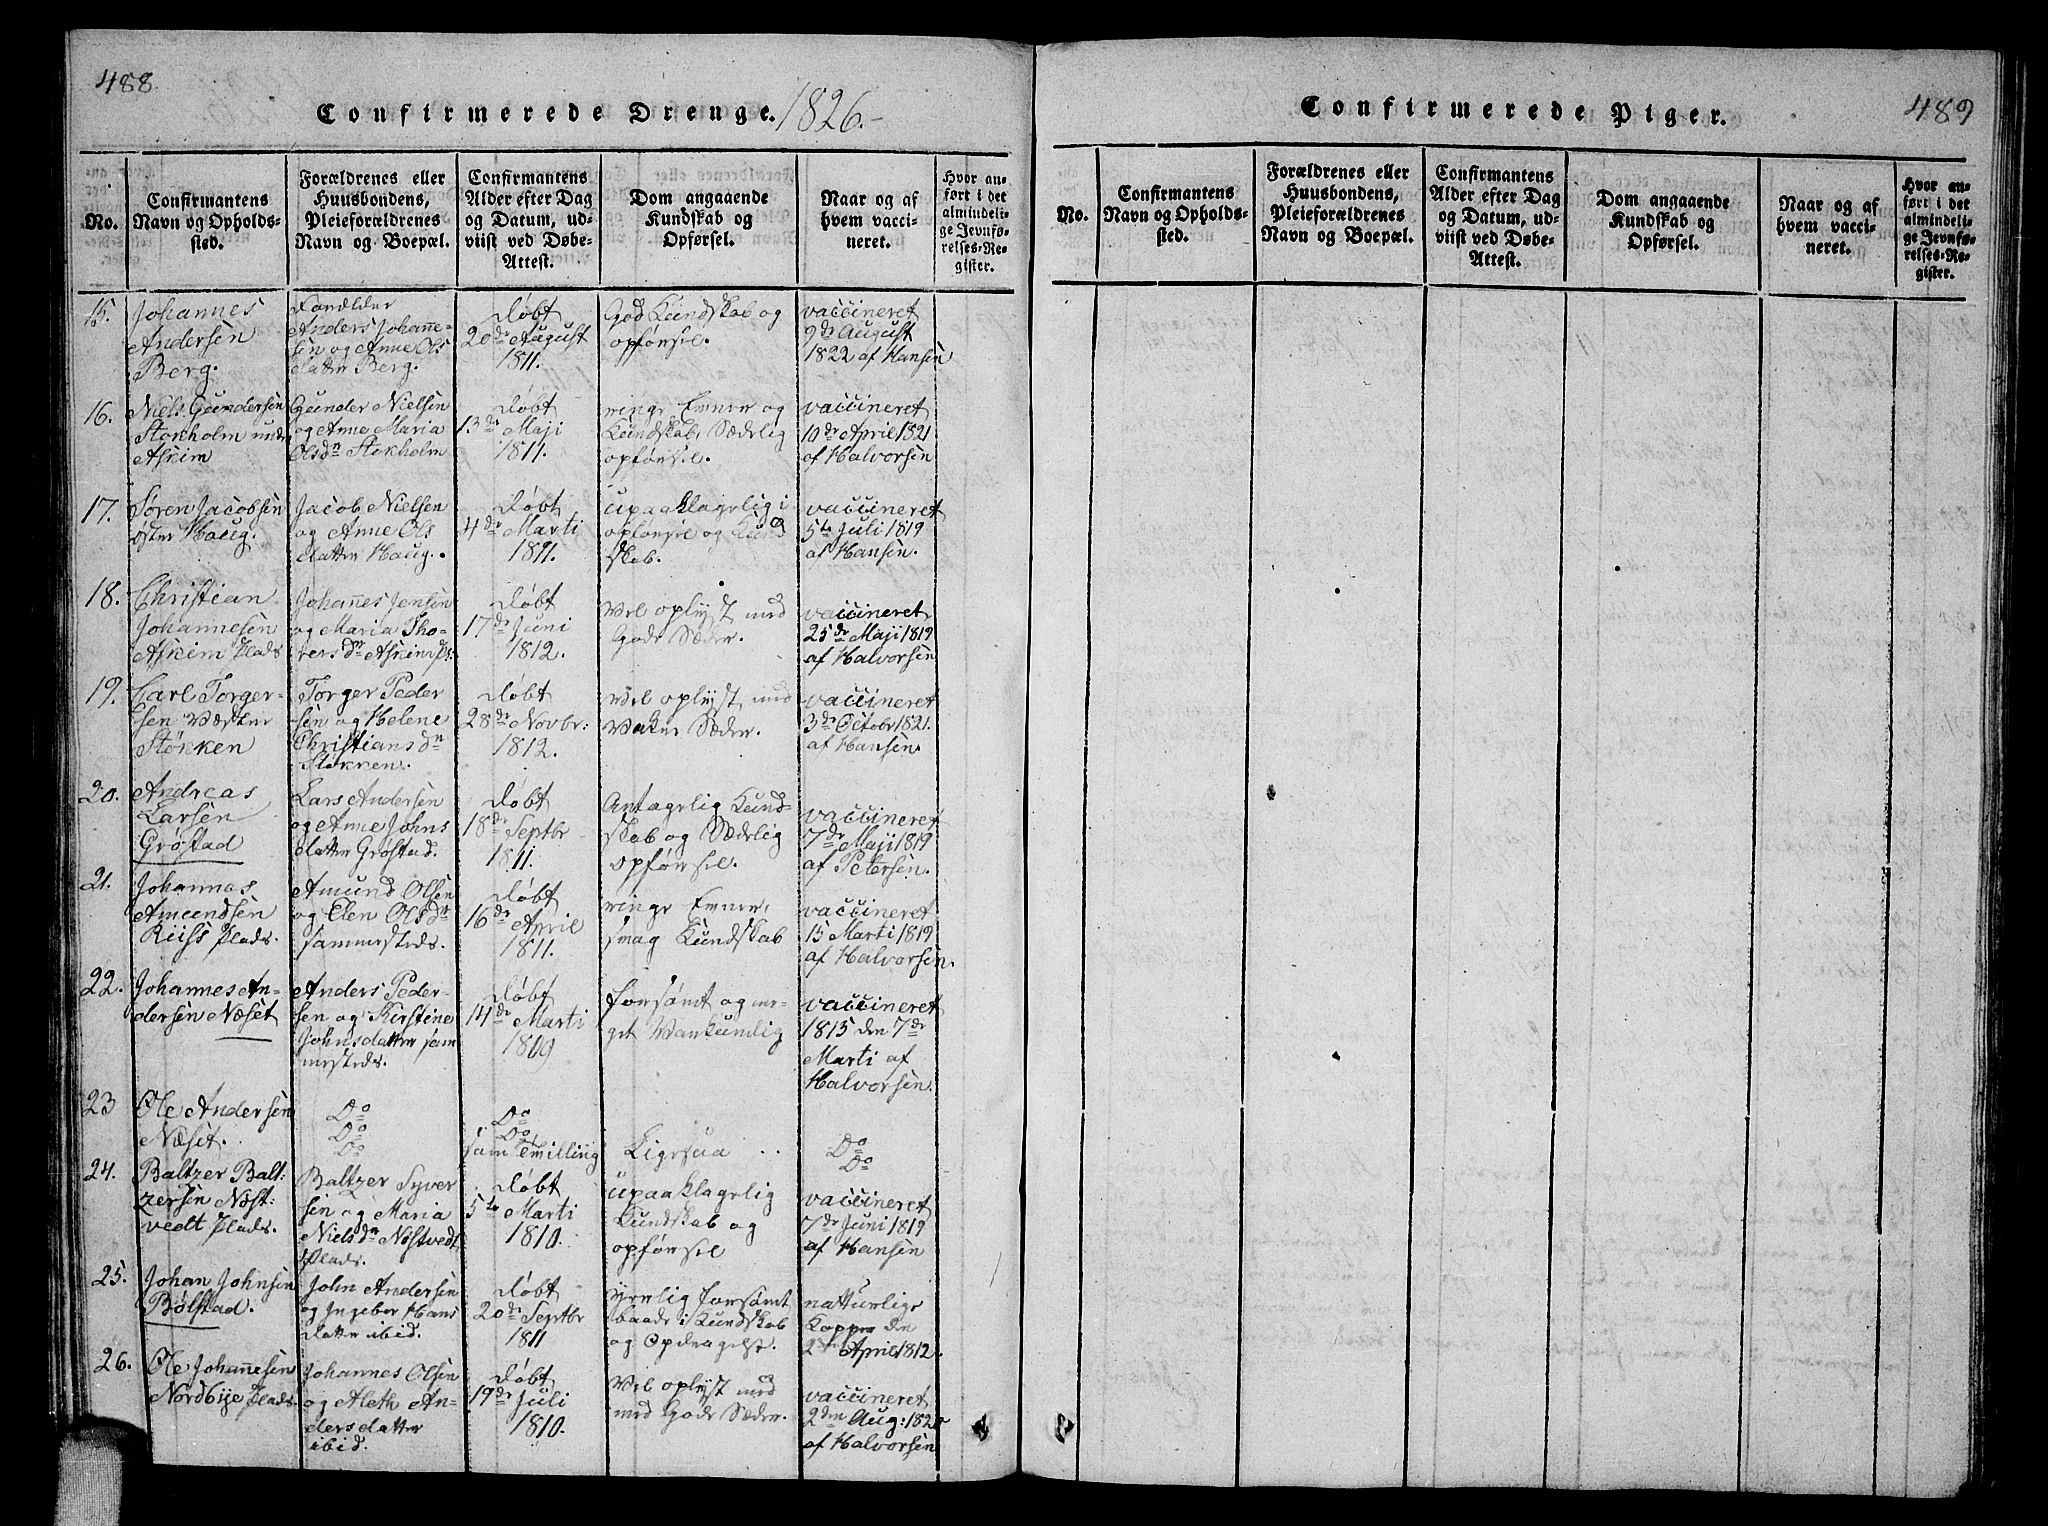 488
Confirmerede Drenge. 1826.-
No.
Confirmantens
Navn og Opholds-
sted.
Forældrenes eller
Huusbondens,
Pleieforældrenes
Navn og Boepæl.
Confirmantens
Alder efter Dag
og Datum, ud-
viist ved Døbe-
Attest.
Dom angaaende
Kundskab og
Opførsel.
Naar og af
hvem vacci-
neret.
Hvor an-
ført i det
almindeli-
ge Jevnfø-
relses-Re-
gister.
15.
Johannes
Andersen
Berg.
Forælder
Anders Johanne-
sen og Anne Ols
datter Berg.
Døbt
20de August
1811.
God Kundskab og
opførsel.
vaccineret
9de August
1822 af Hansen
16.
Niels Gundersen
Stokholm under
Askim
Gunder Nielsen
og Anne Maria
Olsdn Stokholm
Døbt
13de Maji
1811.
ringe Evner og
Kundskab, Sædelig
opførsel.
vaccineret
10de April 1821
af Halvorsen
17.
Søren Jacobsen
øster Haug.
Jacob Nielsen
og Anne Ols
datter Haug.
Døbt
4de Marti
1811.
upaaklagelig i
opførsel og Kund
skab.
vaccineret
5te Juli 1819
af Hansen.
18.
Christian
Johannesen
Askim Plads
Johannes Jensen
og Maria Tho-
resdn Askim Pl:
Døbt
17de Juni
1812.
Vel oplyst med
Gode Sæder.
vaccineret
25de Maji 1819
af Halvorsen
19.
Carl Torger-
sen Væstre
Støkken
Torger Peder
sen og Helene
Christiansdn
Støkken.
Døbt
28de Novbr:
1812.
Vel oplyst, med
Vakre Sæder.
vaccineret
3de Octobr 1821.
af Hansen.
20.
Andreas
Larsen
Grøstad
Lars Andersen
og Anne Johns
datter Grøstad.
Døbt
18de Septbr
1811.
Antagelig Kund-
skab og Sædelig
opførsel.
vaccineret
7de Maji 1819
af Petersen.
21.
Johannas
Amundsen
Riiss Plads.
Amund Olsen
og Elen Olsdtr
sammesteds.
Døbt
16de April
1811.
ringe Evner,
smag Kundskab
vaccineret
15 Marti 1819
af Halvorsen.
22.
Johannes An-
dersen Næset
Anders Peder-
sen og Kirstine
Johnsdatter sam
mesteds.
Døbt
14de Marti
1809
forsømt og me-
get Vankundig
vaccineret
1815 den 7de
Marti af
Halvorsen.
23
Ole Andersen
Næset.
Do
Do
Do
Do
Do
sam Tvilling
Ligesaa
Do
Do
24.
Baltzer Balt:
zersen Nøst-
vedt Plads.
Baltzer Syver
sen og Maria
Nielsdn Nøstvedt
Plads.
Døbt
5te Marti
1810.
upaaklagelig
Kundskab og
opførsel
vaccineret
7de Juni 1819
af Hansen
25.
Johan Johnsen
Bølstad.
John Andersen
og Ingebor Hans
datter ibid.
Døbt
20de Septbr
1811
ynkelig forsømt
baade i Kundskab
og Opdragelse.
natturlige
Kopper den
April 1812.
26.
Ole Johannesen
Nordbye Plads
Johannes Olsen
og Aleth An-
dersdatter
ibid.
Døbt
19de Juli
1810.
Vel oplyst med
med Gode Sæder.
vaccineret
2den Aug: 1820
af Halvorsen
Confirmerede Piger. 489
No.
Confirmantens
Navn og Opholds-
sted.
Forældrenes eller
Huusbondens,
Pleieforældrenes
Navn og Boepæl.
Confirmantens
Alder efter Dag
og Datum, ud-
viist ved Døbe-
Attest.
Dom angaaende
Kundskab og
Opførsel.
Naar og af
hvem vacci-
neret.
Hvor an-
ført i det
almindeli-
ge Jevnfø-
relses-Re-
gister.